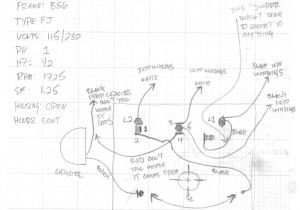 FRAME: B56
TYPE FJ
VOLTS 115/230
PH 1
HP: 1/2
RPM: 1725
S.F. 1.25
HOUSING OPEN
HOURS CONT
THIS "JUMPER"
DOESN'T SEEM
TO CONNECT TO
ANYTHING
BLACK
FROM CAPACITOR
CAN'T TELL
WHERE IT
GOES
INTO WINDINGS
WHITE
INTO WINDINGS
WHITE
BLACK INTO
WINDINGS
BLACK
INTO
WINDINGS
L2
1
2
3
5
4
L1
RED CAN'T
TELL WHERE
IT CAME FROM
BLACK
BLACK
CAPACITOR